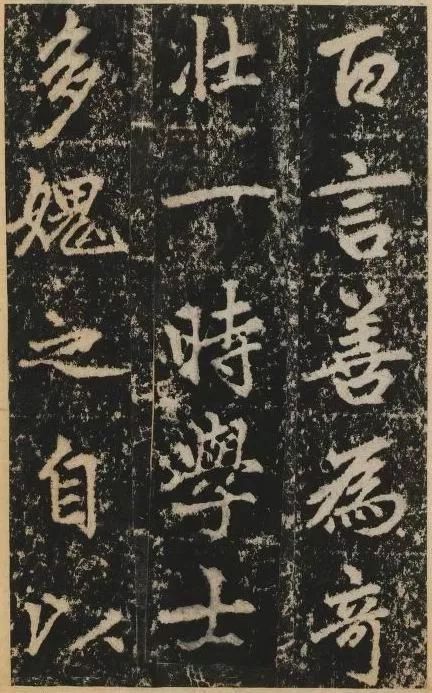 百言善為奇
壯一時學士
多媿之自以